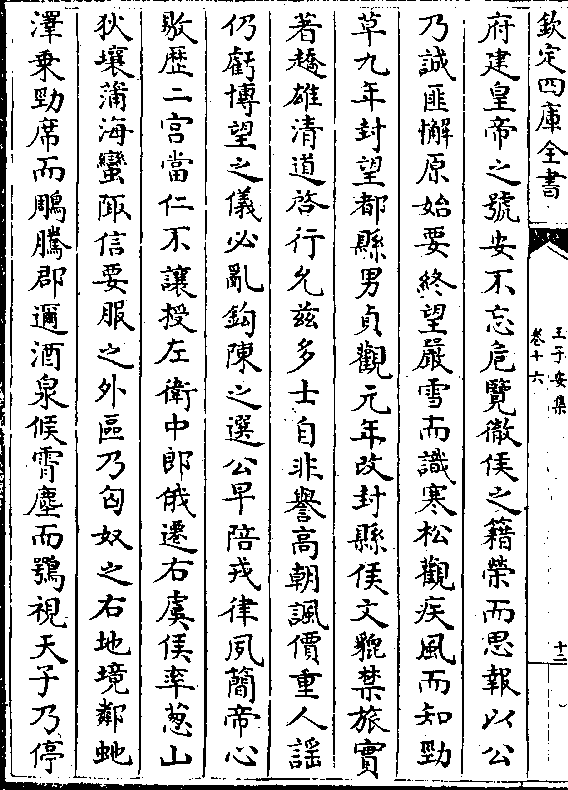 欽定四庫全書
王子安集
卷十六
十三
府建皇帝之號安不忘危覽徹侯之籍榮而思報以公
乃誠匪懈原始要終望嚴雪而識寒松觀疾風而知勁
草九年封望都縣男貞觀元年改封縣侯文貔禁旅實
著趫雄清道啓行允兹多士自非譽高朝諷價重人謡
仍虧博望之儀必亂鈎陳之選公早陪戎律夙簡帝心
敭歴二宫當仁不讓授左衛中郎俄遷右虞侯率葱山
狄壤蒲海蠻陬信要服之外區乃匈奴之右地境鄰虵
澤乗勁席而鵰騰郡邇酒泉候霄塵而鶚視天子乃停